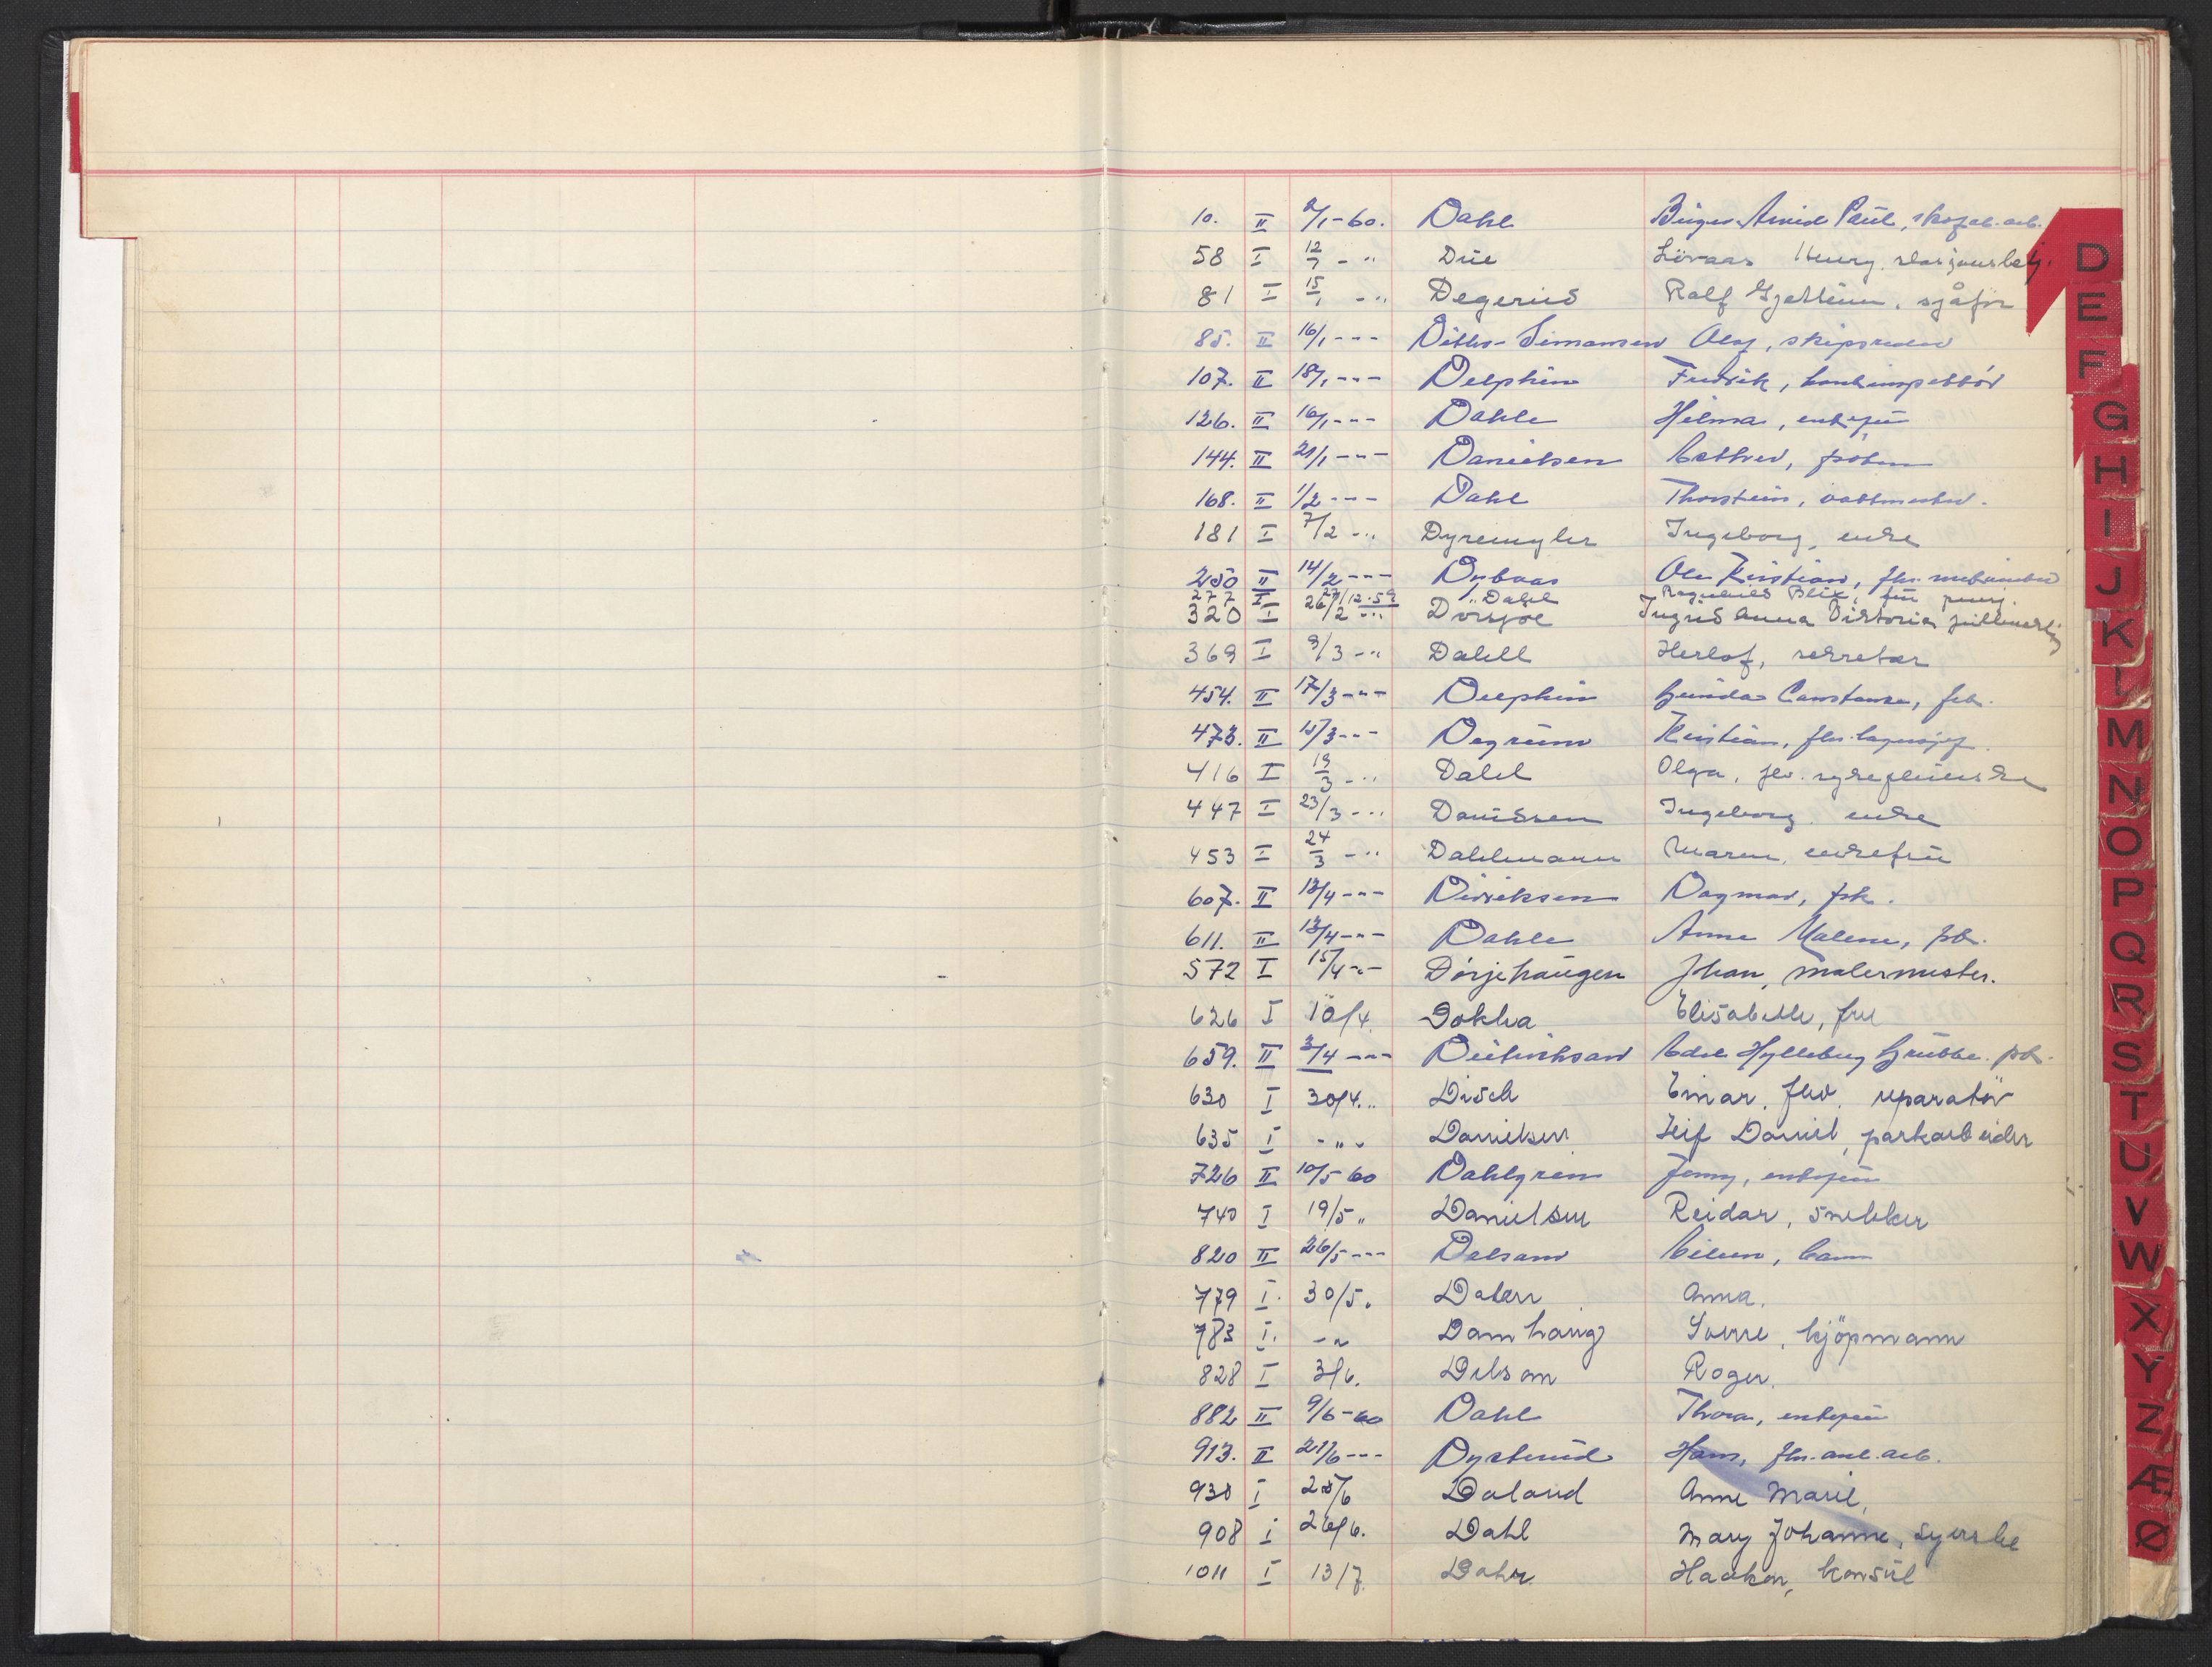 10. II 2/1-60. Dahl Birger Arvid Paul, skofab.arb.
58 I 12/1 - " Due Henry
81 I 15/1 - " Degerud Rolf sjåfør
85. II 16/1 - " - Ditlev-Simonsen Olaf, skipsreder
107. II 18/1 - " - Delphin Fredrik,
126. II 16/1 - " - Dahle Hilma, enkefru
144. II 21/1 - " - Danielsen
168. II 1/2 - " - Dahl Thorstein, vaktmester.
181 I 7/2 - " Dyremyhr Ingeborg, enke
250 II 14/2 - " - Dybaas Ole Kristian, fhv.
277 I 27/12.59 Dahl Ragnhild Blix, fru pensj.
320 I 26/2 - " Ingrid Anna Viktoria
369 I 9/3 - " Dahll Herlof, sekretær
454. II 17/3 - " - Delphin Gunda Constance, frk.
473. II 15/3 - " - Degrum Kristian, fhv. lagersjef.
416 I 19/3 - " Dahl Olga, fhv. sykepleierske
447 I 23/3 - " Davidsen Ingeborg enke
453 I 24/3 - " Dahlmann Maren, enkefru
607. II 13/4 - " - Diriksen Dagmar, frk.
611. II 13/4 - " - Dahle Anne Malene, frk.
572 I 15/4 - " - Dørjehaugen Johan, malermester.
626 I 10/4. Dokka Elisabeth, fru
659. II 3/4 - " - Hylleberg Grubbe. frk.
630 I 30/4. " Disch Einar, fhv. reparatør
635 I - " - Danielsen Leif Daniel, parkarbeider
726 II 10/5 60 Dahlgren Jenny, enkefru
740 I 19/5 " Danielsen Reidar, snekker
820 II 26/5 - " - barn
779 I. 30/5. Anna.
783 I. - " Damhaug Sverre, kjöpmann
828 I 3/6. Roger.
882 II 9/6-60 Dahl Thora, enkefru
913. II 21/6 - " - Hans, fhv. anl. arb.
930 I 25/6 Daland Anne Marie,
908 I 26/6. Dahl Mary Johanne, syerske
1011 I 13/7. Haakon, konsul
D
E
F
G
H
I
J
K
L
M
N
O
P
Q
R
S
T
U
V
W
X
Y
Z
Æ
Ø